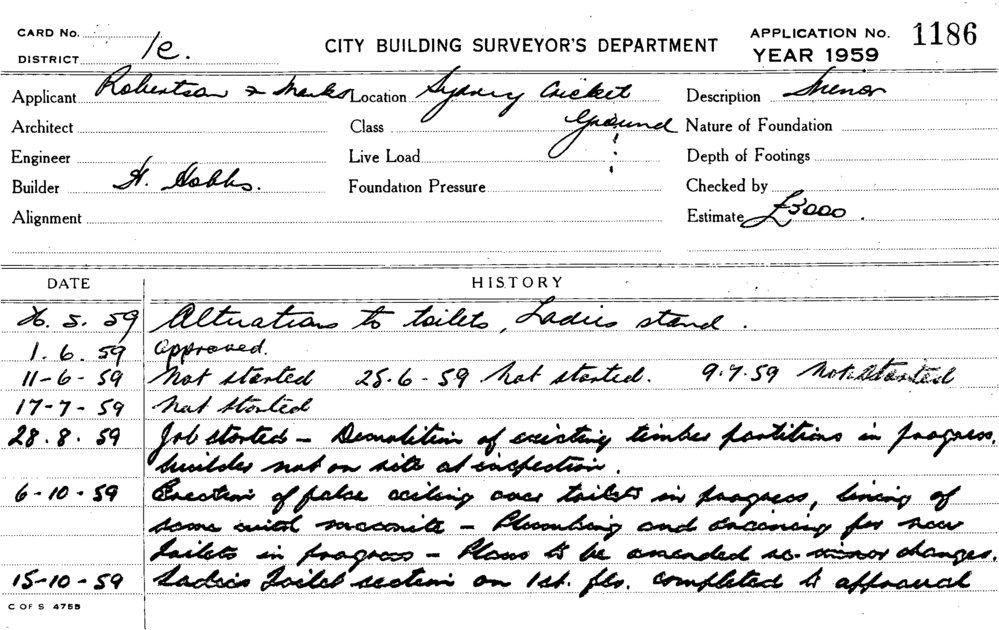 CARD No.
DISTRICT 1e.
CITY BUILDING SURVEYOR'S DEPARTMENT
APPLICATION No. 1186
YEAR 1959
Applicant Robertson & Marks Location Sydney Cricket Ground Description Minor
Architect Class Nature of Foundation
Engineer Live Load Depth of Footings
Builder H. Hobbs. Foundation Pressure Checked by
Alignment Estimate £3000.
DATE HISTORY
5. 59 Alterations to toilets, Ladies stand.
1. 6. 59 Approved.
11-6-59 Not started 25.6-59 Not started. 9.7.59 Not Started
17-7-59 Not started
28.8.59 Job started - Demolition of existing timber partitions in progress.
builder not on site at inspection.
6-10-59 Erection of false ceiling over toilets in progress, lining of
same with masonite - Plumbing and draining for new
toilets in progress - Plans to be amended re-minor changes.
15-10-59 Ladies Toilet section on 1st. flr. completed to approval
C OF S 4755